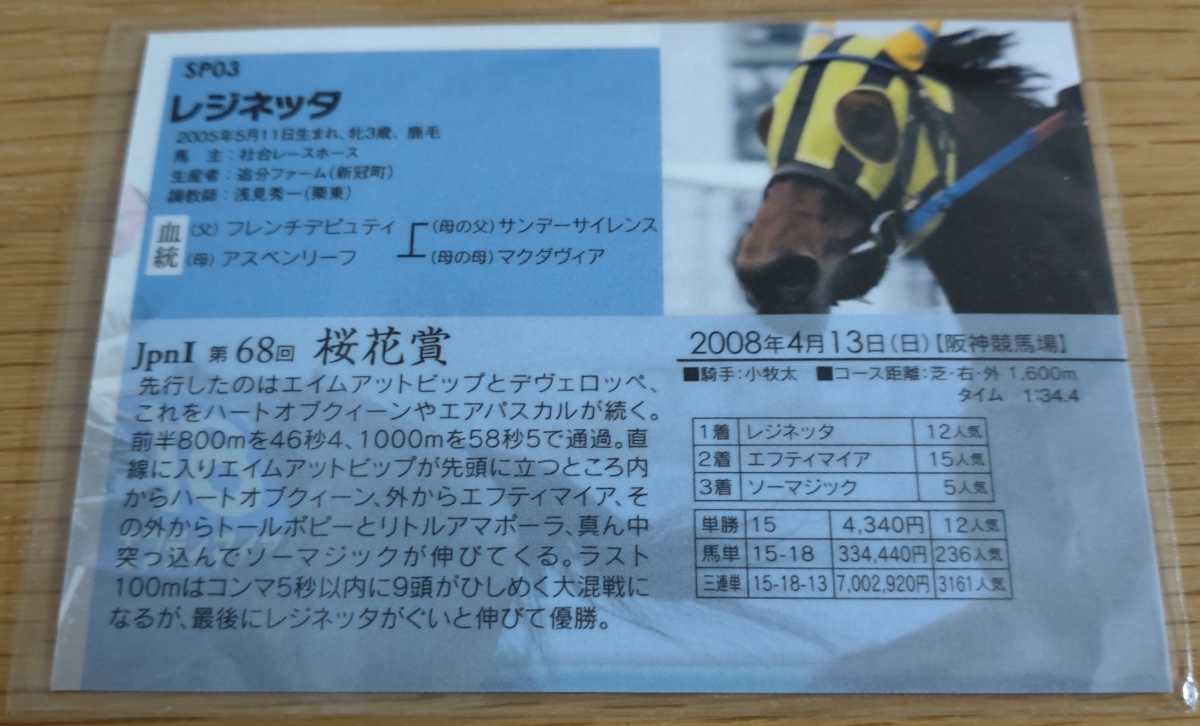 SP03
レジネッタ
2005年5月11日生まれ、牝3歳、鹿毛
馬 主：社台レースホース
生産者：追分ファーム(新冠町)
調教師：浅見秀一(栗東)
血統
(父) フレンチデピュティ
(母) アスペンリーフ
(母の父) サンデーサイレンス
(母の母) マクダヴィア
JpnI 第68回 桜花賞
先行したのはエイムアットビップとデヴェロッペ、
これをハートオブクィーンやエアパスカルが続く。
前半800mを46秒4、1000mを58秒5で通過。直
線に入りエイムアットビップが先頭に立つところ内
からハートオブクィーン、外からエフティマイア、そ
の外からトールポピーとリトルアマポーラ、真ん中
突っ込んでソーマジックが伸びてくる。ラスト
100mはコンマ5秒以内に9頭がひしめく大混戦に
なるが、最後にレジネッタがぐいと伸びて優勝。
2008年4月13日(日)【阪神競馬場】
■騎手：小牧太 ■コース距離：芝・右・外 1,600m
タイム 1:34.4
1着 レジネッタ 12人気
2着 エフティマイア 15人気
3着 ソーマジック 5人気
単勝 15 4,340円 12人気
馬単 15-18 334,440円 236人気
三連単 15-18-13 7,002,920円 3161人気